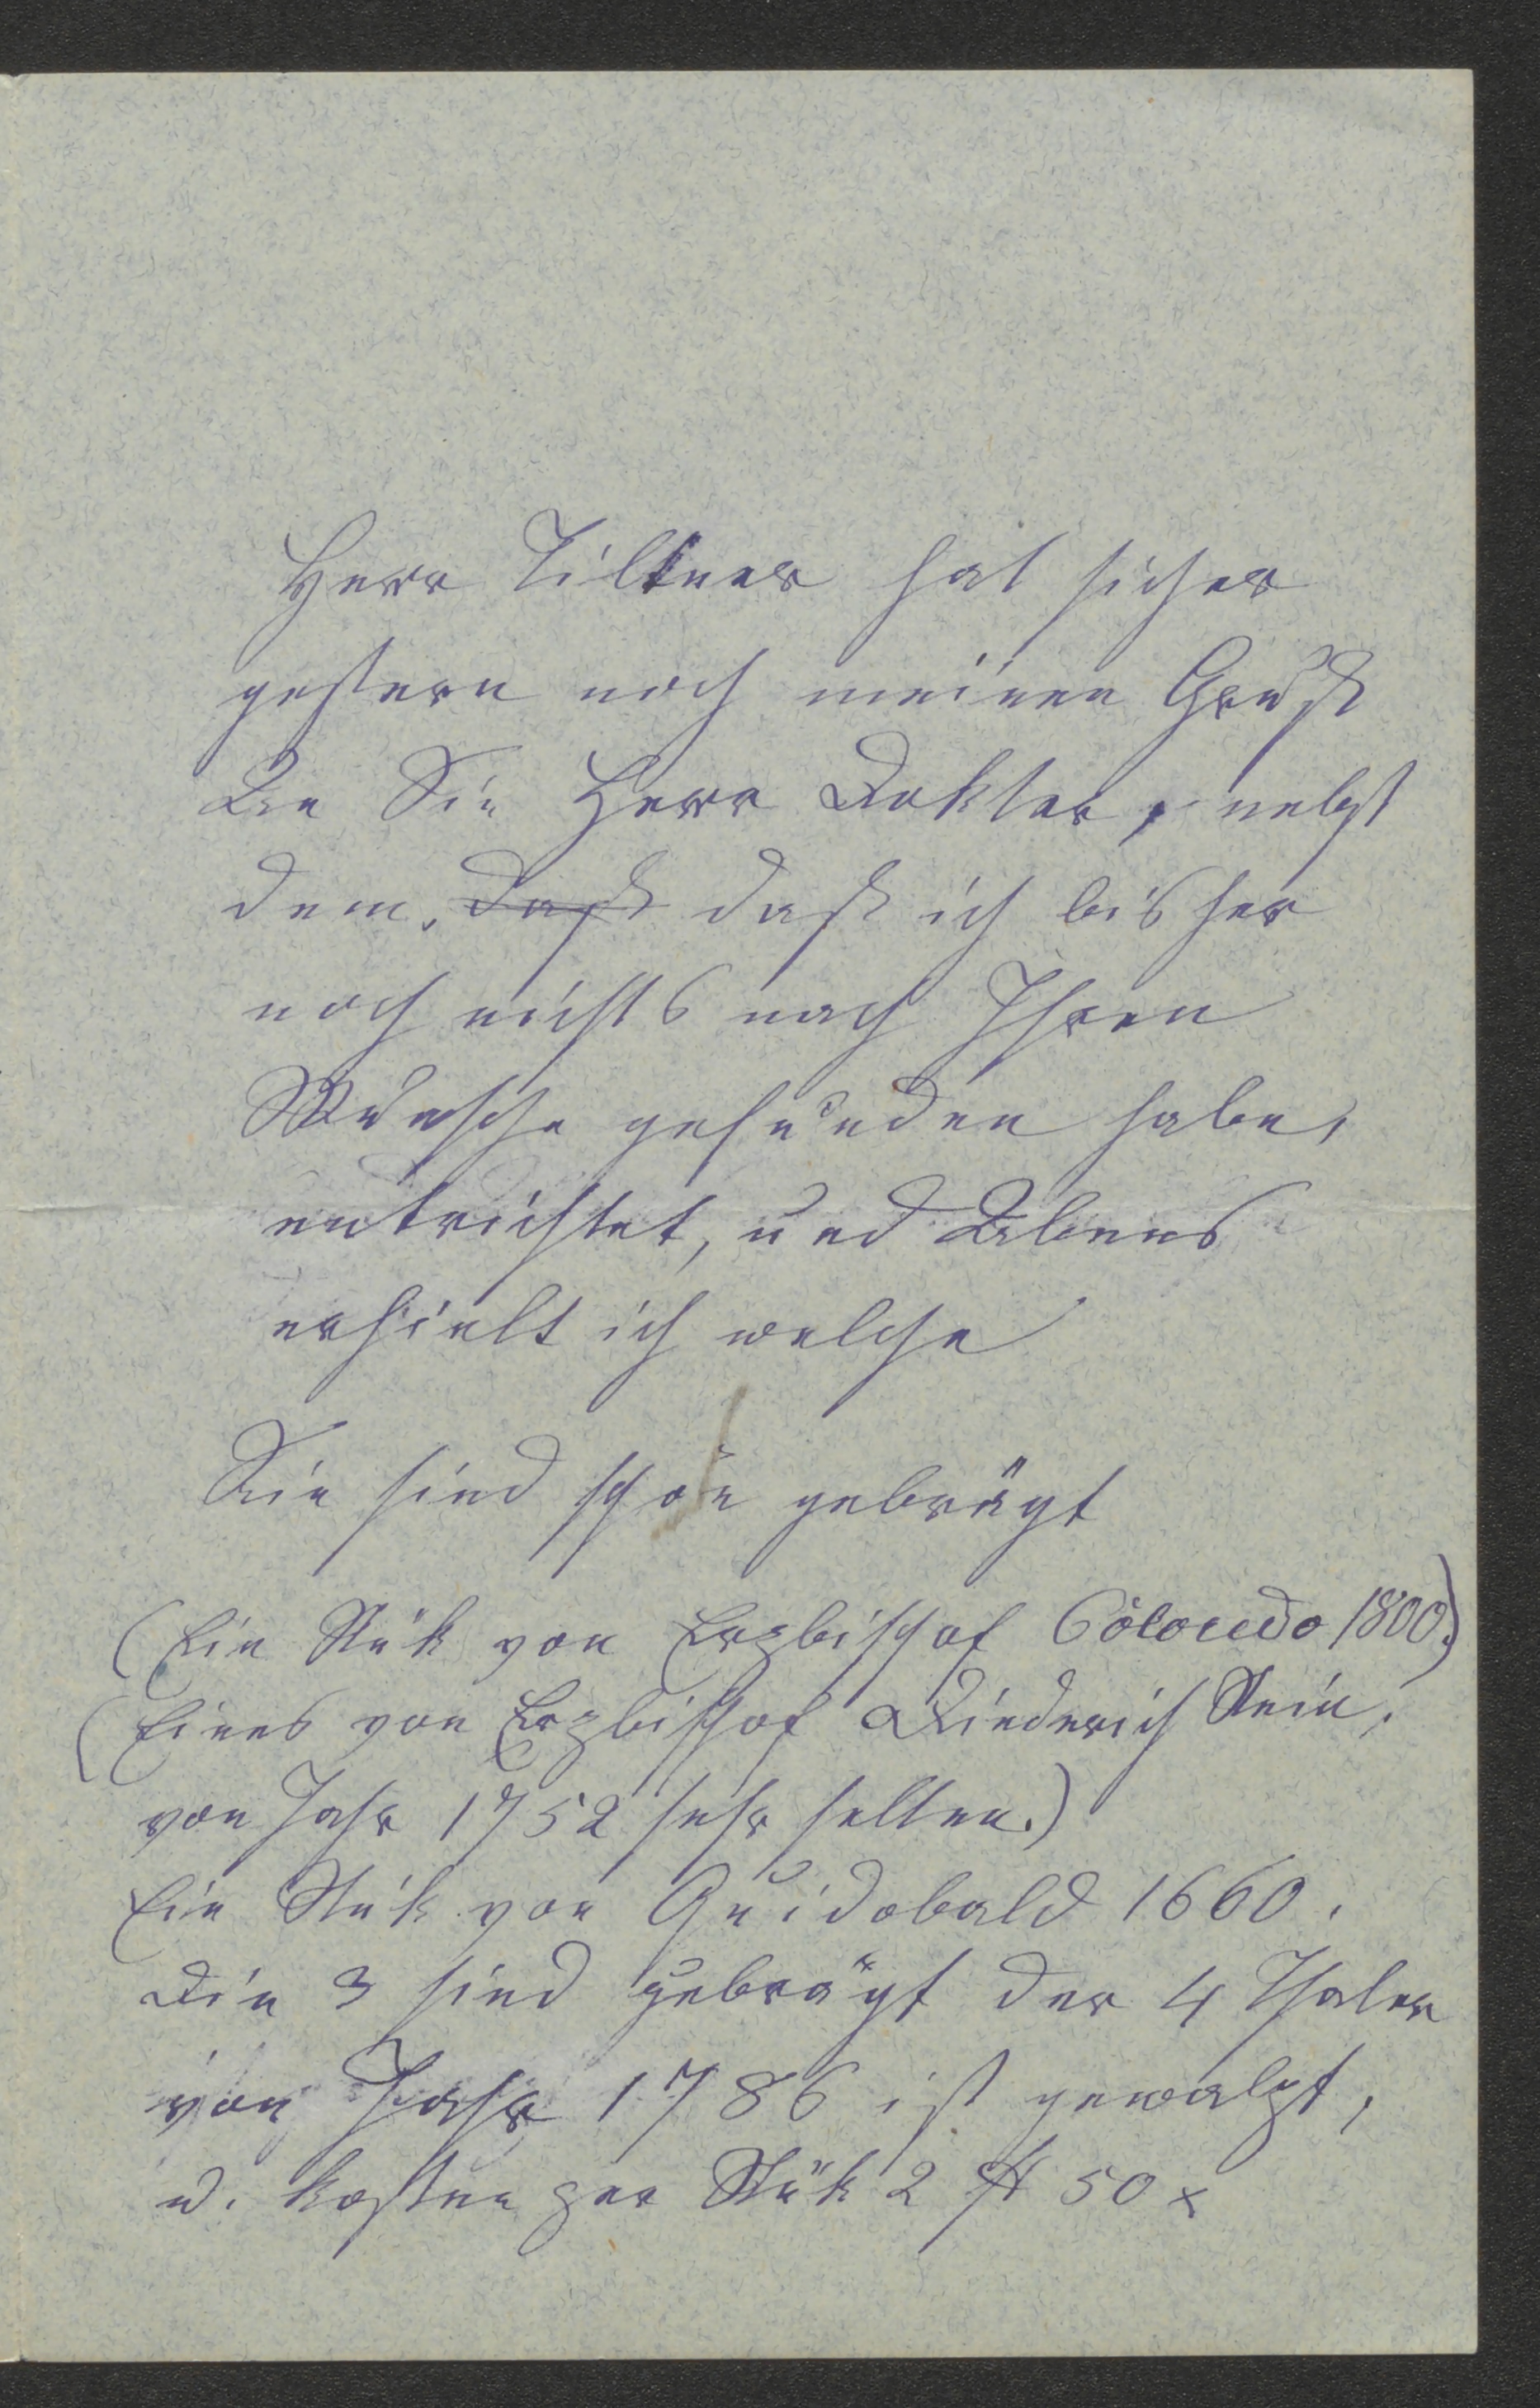 Herr Tilkner hat sicher
gestern noch meinen Gruß
An Sie Herr Dokter, nebst
dem, daß daß ich bisher
noch nichts nach Ihren
Wunsche gefunden habe,
entrichtet, und Abens
erhielt ich welche
Sie sind schön gebrägt
(Ein Stük von Erzbischof Coloredo 1800.)
(Eines von Erzbischof Diederich Stein,
von Jahr 1752 sehr selten.)
Ein Stük von Guidobald 1660.
Die 3 sind gebrägt der 4 Thaler
von Jahr 1786 ist gewalzt,
u. kosten per Stük 2 fl 50 x